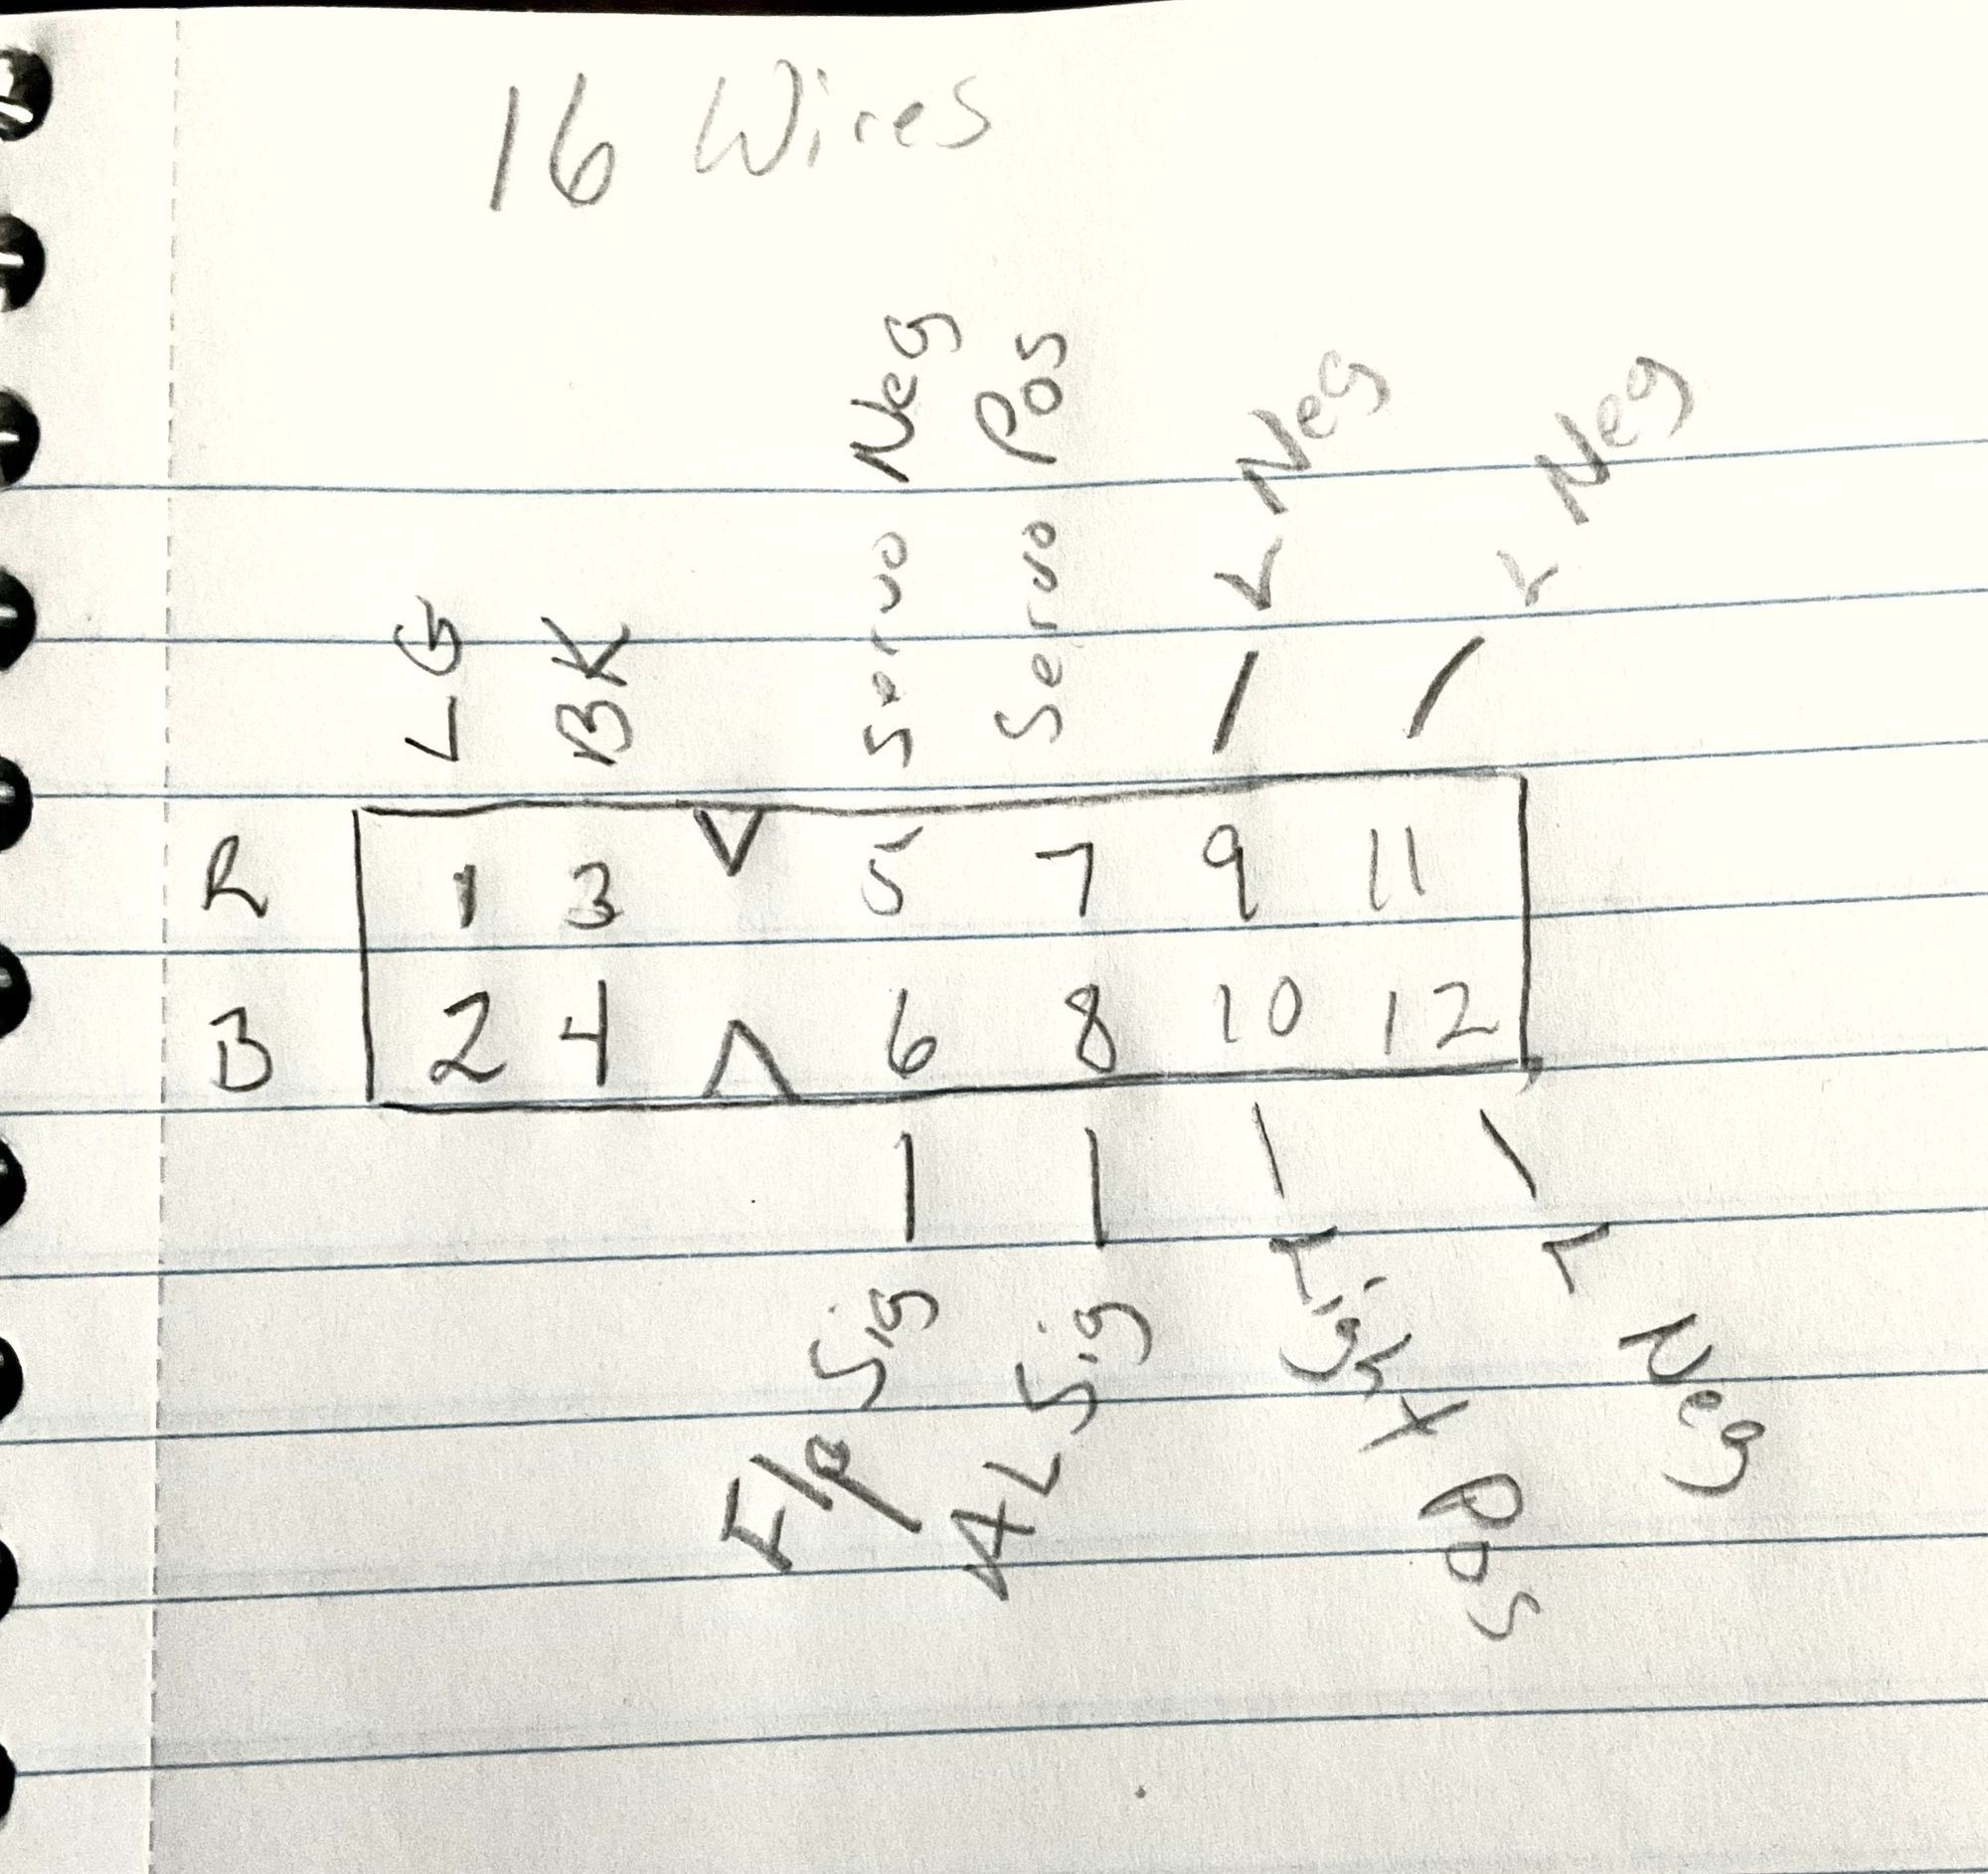 16 Wires
Servo Neg
Servo Pos
Neg
Neg
LG
BK
R 1 3 5 7 9 11
B 2 4 6 8 10 12
Flp Sig
AL Sig
Pos
L Neg